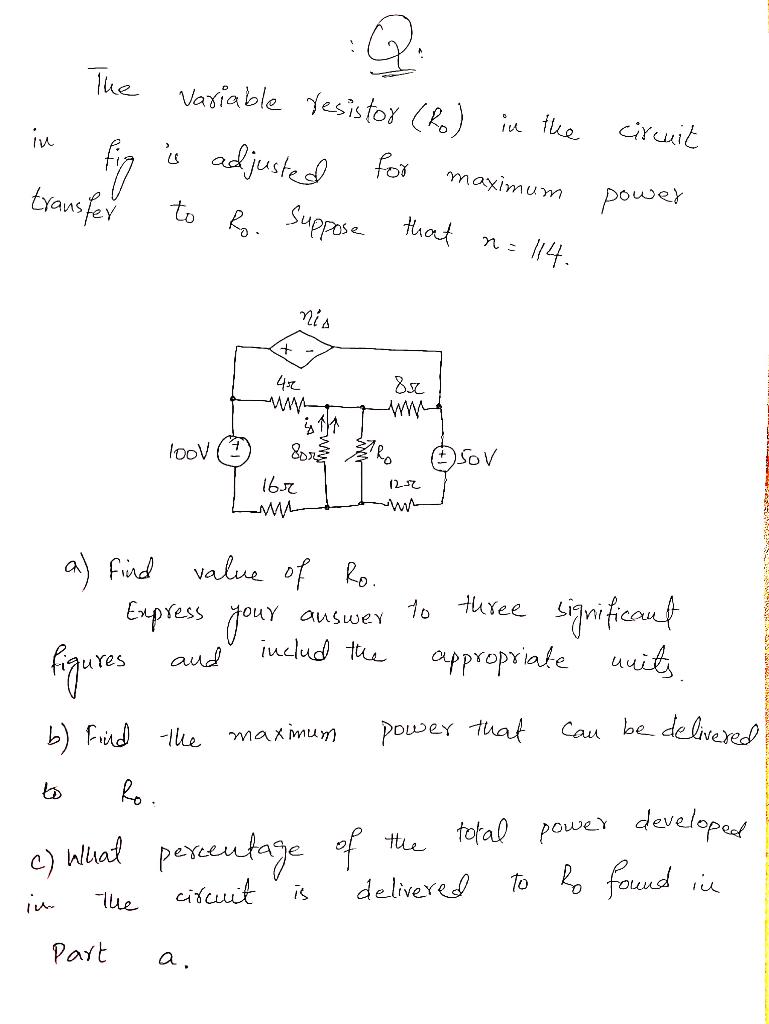 : Q.
The variable resistor (Ro) in the circuit
in fig is adjusted for maximum power
transfer to Ro. Suppose that n = 114.
niΔ
+ -
4Ω 8Ω
iΔ
100V + - 80Ω Ro + - 50V
16Ω 12Ω
a) Find value of Ro.
Express your answer to three significant
figures and includ the appropriate units.
b) Find the maximum power that can be delivered
to Ro.
c) What percentage of the total power developed
in the circuit is delivered to Ro found in
Part a.